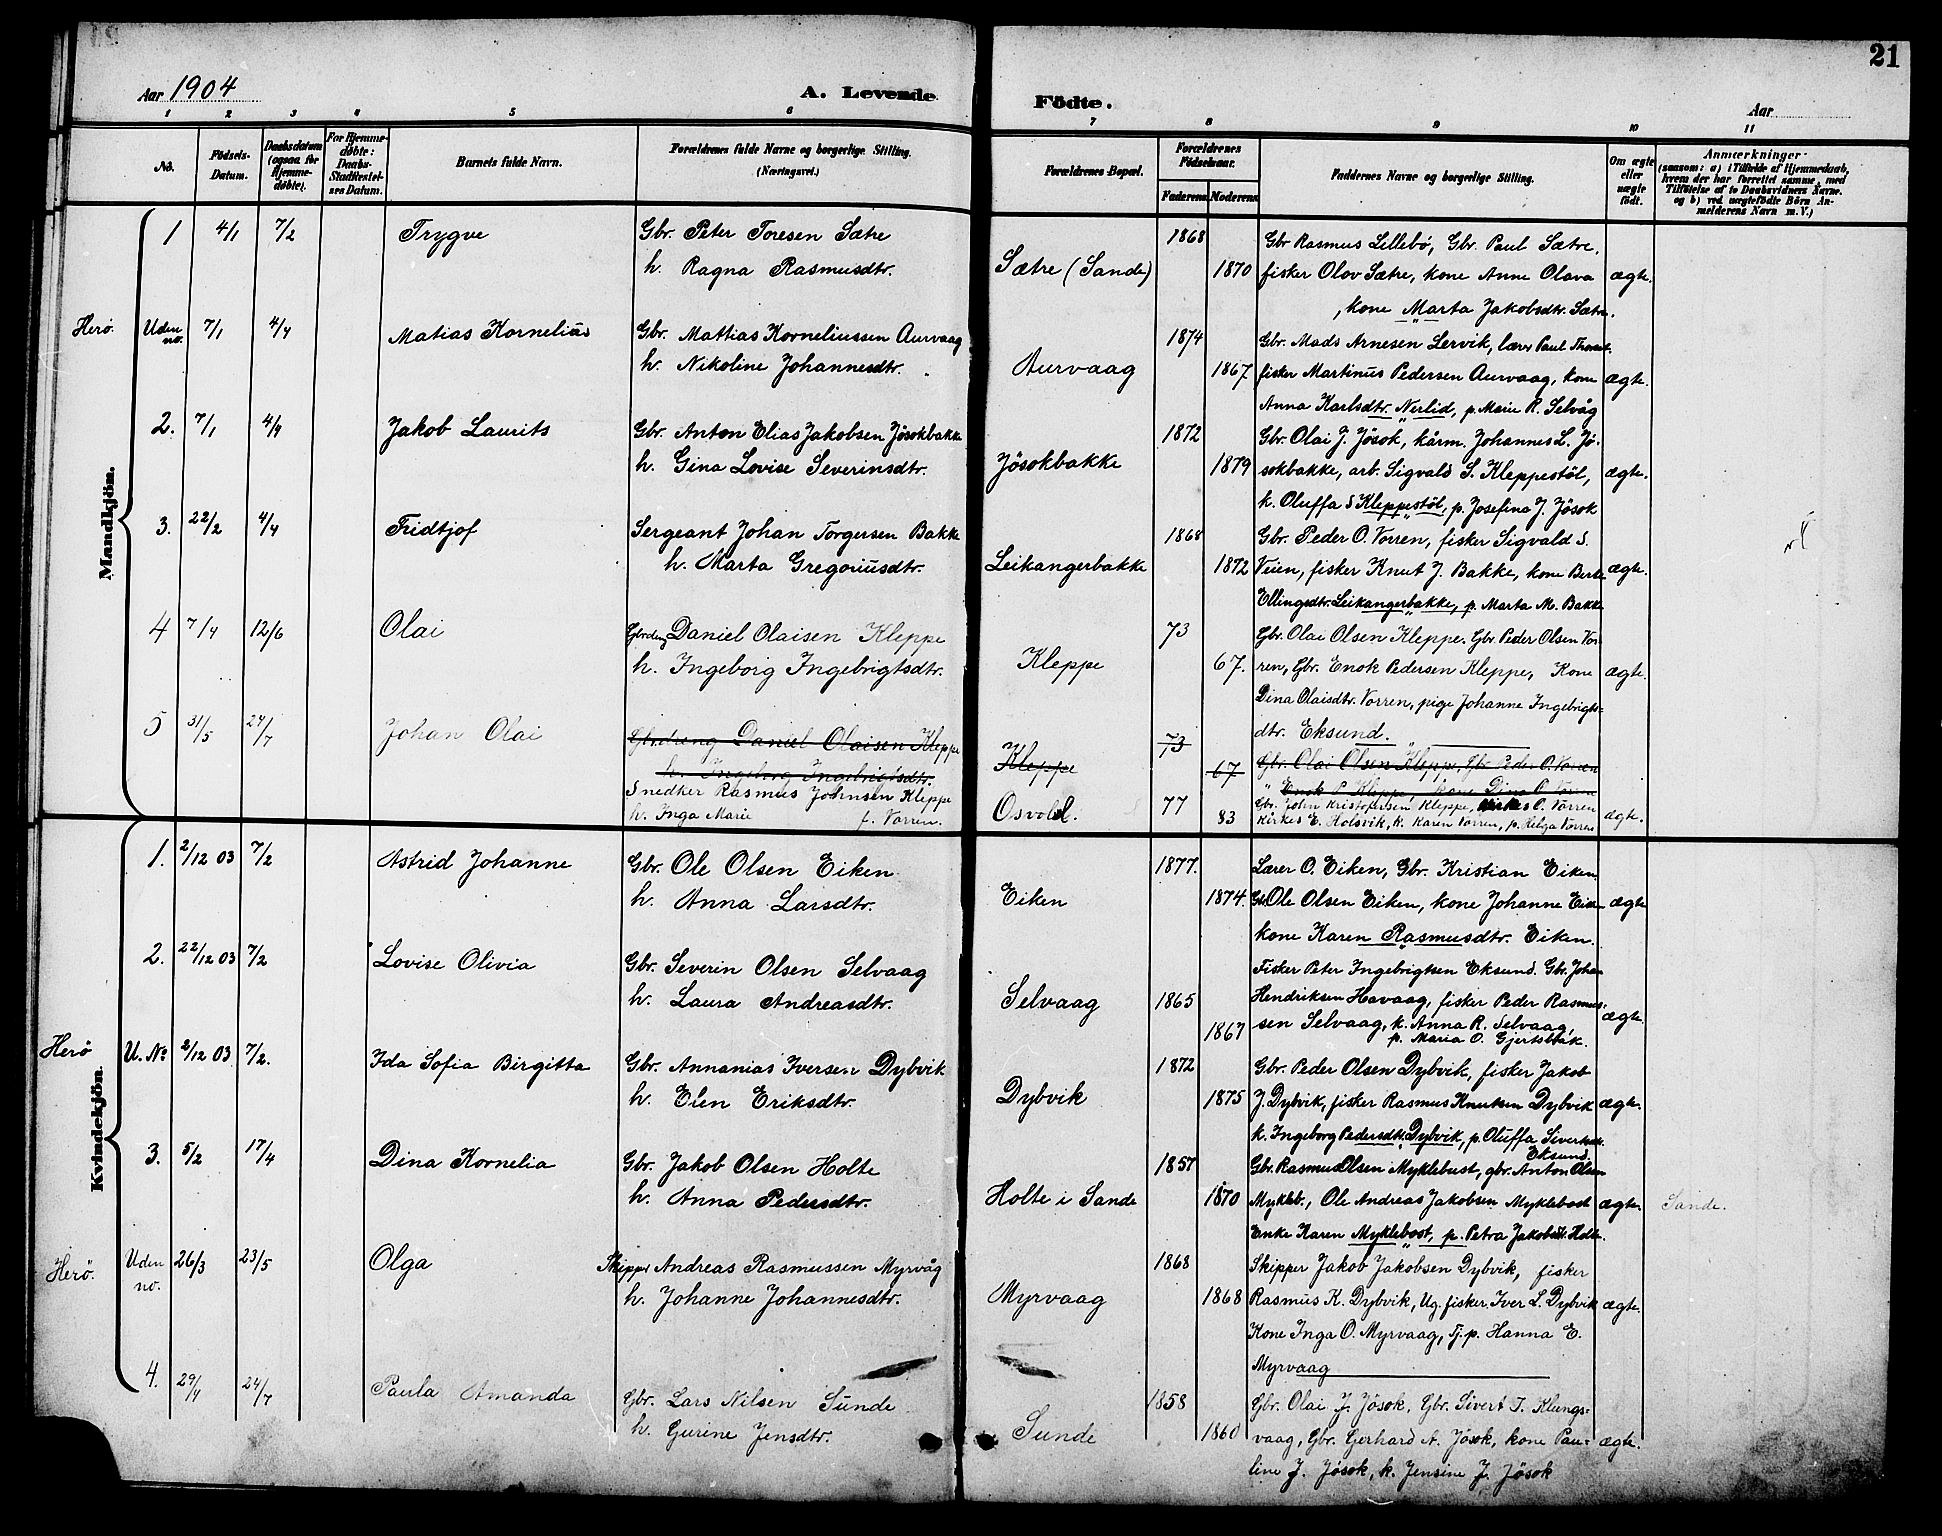 21
Aar 1904
A. Levende
Födte.
Aar
1 2 3 4 5 6 7 8 9 10 11
No.
Födsels-Datum.
Daabsdatum (ogsaa for Hjemmedöbte).
For Hjemmedöbte: Daabs-Stadfæstelses Datum.
Barnets fulde Navn.
Forældrenes fulde Navne og borgerlige Stilling. (Næringsvei.)
Forældrenes Bopæl.
Forældrenes Födselsaar.
Faderens Moderens
Faddernes Navne og borgerlige Stilling.
Om ægte eller uægte födt.
Anmærkninger
(saasom: a) i Tilfælde af Hjemmedaab, hvem der har forrettet samme, med Tilföielse af to Daabsvidners Navne. og b) ved uægtefödte Börn Anmelderens Navn m.V.)
Mandkjön.
1 4/1 7/2 Trygve Gbr. Peter Toresen Sætre 1868 Gbr Rasmus Lillebö, Gbr. Paul Sætre,
h. Ragna Rasmusdtr. Sætre (Sande) 1870 fisker Olov Sætre, kone Anne Olava ægte.
, kone Marta Jakobsdtr. Sætre.
Herö. Uden no. 7/1 4/4 Matias Kornelius Gbr. Mattias Korneliussen Aurvaag 1874 Gbr. Mads Arnesen Lervik, lærer Paul
h. Nikoline Johannesdtr. Aurvaag 1867 fisker Martinus Pedersen Aurvaag, kone ægte.
Anna Karlsdtr. Nerlid, p. Marie R. Selvåg
2. 7/1 4/4 Jakob Laurits Gbr. Anton Elias Jakobsen Jösokbakke 1872 Gbr. Olai J. Jösok, kårm. Johannes L. Jö-
h. Gina Lovise Severinsdtr. Jösokbakke 1879 sokbakke, arb. Sigvald S. Kleppestöl, ægte.
k. Oluffa S Kleppestöl, p. Josefina J. Jösok
3. 22/2 4/4 Fridtjof Sergeant Johan Torgersen Bakke 1868 Gbr. Peder O. Vorren, fisker Sigvald S.
h. Marta Gregoriusdtr. Leikangerbakke 1872 Veien, fisker Knut J. Bakke, kone Berte ægte.
Ellingsdtr. Leikangerbakke, p. Marta M. Bakke
4 7/4 12/6 Olai Gbrdreng Daniel Olaisen Kleppe 73 Gbr. Olai Olsen Kleppe. Gbr. Peder Olsen Vor-
h. Ingeborg Ingebrigtsdtr. Kleppe 67. ren, Gbr. Enok Pedersen Kleppe, Kone ægte.
Dina Olaisdtr. Vorren, pige Johanne Ingebrigts-
dtr. Eksund.
5 31/5 24/7 Johan Olai Gbrdreng Daniel Olaisen Kleppe 73
h. Ingeborg Ingebrigtsdtr. Kleppe 67 Gbr. Olai Olsen Kleppe, Gbr Peder O. Vorren
" Enok P Kleppe, kone Dina O Vorren
Snedker Rasmus Johnsen Kleppe Osvold. 77 Gbr. John Kristofersen Kleppe, O. Vorren
h. Inga Marie f. Vorren. 83 Kirkes E. Holsvik, k. Karen Vorren, p. Helga Vorren ægte.
Kvindekjön.
1. 2/12 03 7/2 Astrid Johanne Gbr. Ole Olsen Eiken 1877. Lærer O. Eiken, Gbr. Kristian Eiken
h. Anna Larsdtr. Eiken 1874. Gbr. Ole Olsen Eiken, kone Johanne Eiken ægte
kone Karen Rasmusdtr. Eiken.
2. 22/12 03 7/2 Lovise Olivia Gbr. Severin Olsen Selvaag Fisker Peter Ingebrigtsen Eksund. Gbr. Johan
h. Laura Andreasdtr. Selvaag 1865 Hendriksen Havaag, fisker Peder Rasmus-
1867 sen Selvaag, k. Anna R. Selvaag, ægte.
p. Maria O. Gjertsbak.
Herö U. No 2/12 03 7/2. Ida Sofia Birgitta Gbr. Annanias Iversen Dybvik 1872 Gbr. Peder Olsen Dybvik, fisker Jakob
h. Elen Eriksdtr. Dybvik 1875 J. Dybvik, fisker Rasmus Knutsen Dybvik ægte.
k. Ingeborg Pedersdtr. Dybvik, p. Oluffa Sivertsdt. Eksund.
3. 5/2 17/4 Dina Kornelia Gbr. Jakob Olsen Holte 1857 Gbr. Rasmus Olsen Myklebust, gbr. Anton Olsen
h. Anna Pedersdtr. Holte i Sande 1870 Mykleb., Ole Andreas Jakobsen Myklebost ægte. Sande.
Enke Karen Myklebost, p. Petra Jakobsdt. Holte.
Herö. Uden no. 26/3 23/5 Olga Skipper Andreas Rasmussen Myrvåg 1868 Skipper Jakob Jakobsen Dybvik, fisker
h. Johanne Johannesdtr. Myrvaag 1868 Rasmus K. Dybvik, Ug. fisker. Iver L. Dybvik ægte.
Kone Inga O. Myrvaag, Tj. p. Hanna E.
Myrvaag
4. 29/4 24/7 Paula Amanda Gbr. Lars Nilsen Sunde 1858 Gbr. Olai J. Jösok, Gbr. Sivert T. Klungs-
h. Gurine Jensdtr. Sunde 1860 vaag, Gbr. Gerhard A. Jösok, kone Pau- ægte.
line J. Jösok, k. Jensine J. Jösok